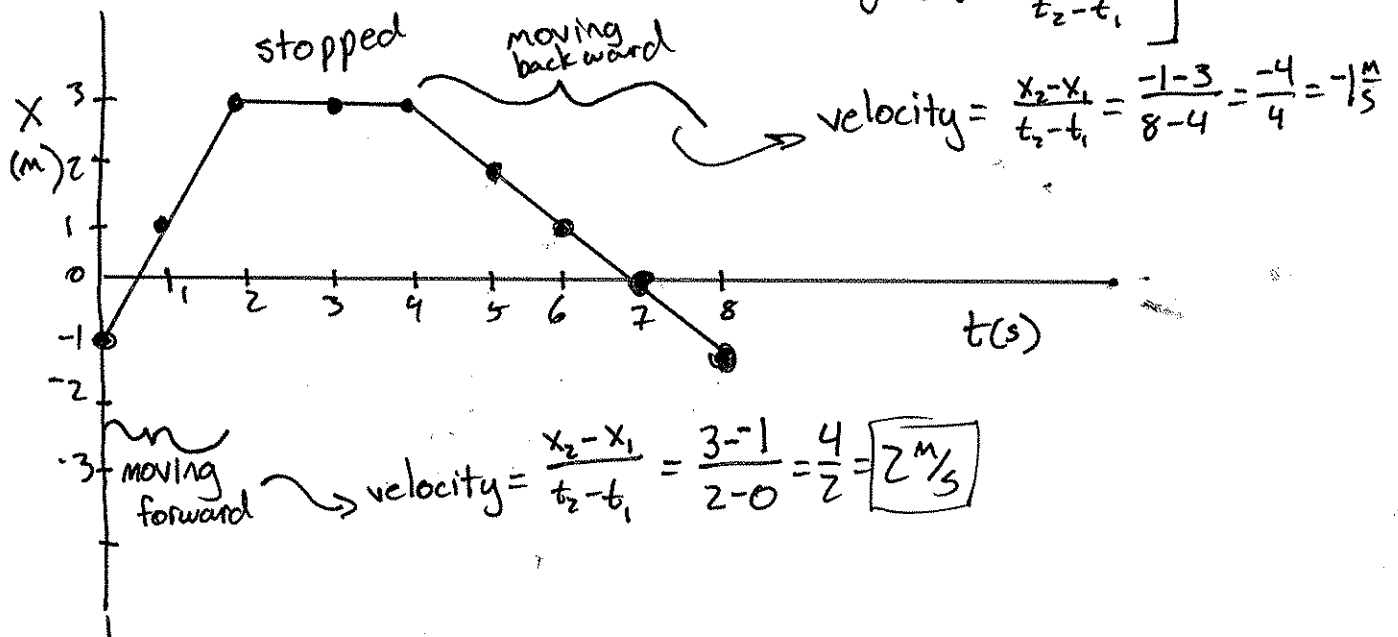 t₂-t₁ ]
stopped
moving
backward
velocity = x₂-x₁/t₂-t₁ = -1-3/8-4 = -4/4 = -1 m/s
X
(m)
3
2
1
0
-1
-2
-3
1 2 3 4 5 6 7 8
t(s)
moving
forward
velocity = x₂-x₁/t₂-t₁ = 3--1/2-0 = 4/2 = 2 m/s